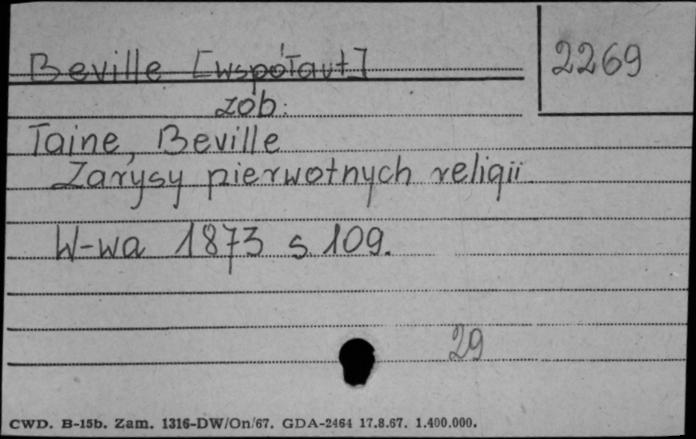 Beville [współaut]
2269
zob:
Taine, Beville
Zarysy pierwotnych religii
W-wa 1873 s. 109.
29
CWD. B-15b. Zam. 1316-DW/On/67. GDA-2464 17.8.67. 1.400.000.